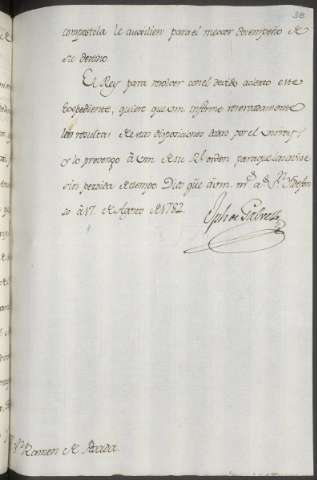 38
compostela le auxilien para el mexor desempeño de
su destino.
El Rey para resolver con el devido acierto este
Expediente, quiere que vm informe reservadamente
las resultas de estas disposiciones dadas por el
y lo prevengo à vm de su Rl orden para que las avise
sin perdida de tiempo. Dios güe à vm ms as Sn Ildefon
so à 17 de Agosto de 1782
Jph de Galvez
Sr Ramon de Posada.